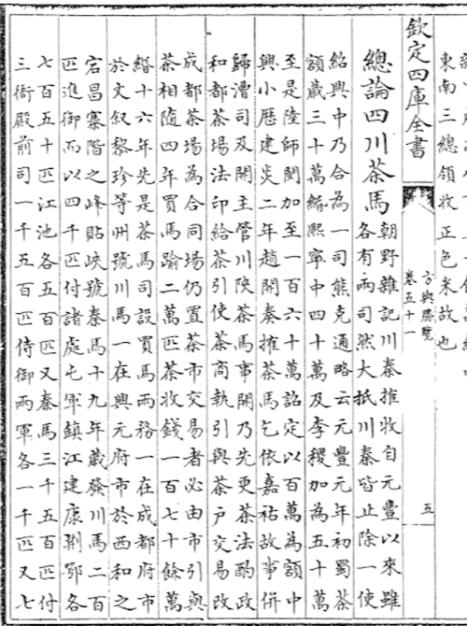 東南三總領收正色米故也
欽定四庫全書
方輿勝覽
卷五十一
五
總論四川茶馬
朝野雜記川秦榷牧自元豐以來雖
各有兩司然大抵川秦皆止除一使
紹興中乃合為一司熊克通略云元豐元年初蜀茶
額歲三十萬緡熙寧中四十萬及李稷加為五十萬
至是陸師閔加至一百六十萬詔定以百萬為額中
興小歷建炎二年趙開奏榷茶馬乞依嘉祐故事併
歸漕司及開主管川陝茶馬事開乃先更茶法酌政
和都茶場法印給引使茶商執引與茶戶交易改
成都茶場為合同場仍置茶市交易者必由市引與
茶相隨四年買馬踰二萬匹茶收錢一百七十餘萬
緡十六年先是茶馬司設買馬兩務一在成都府市
於文叙黎珍等州號川馬一在興元府市於西和之
宕昌寨階之峰貼峽號秦馬十九年歲發川馬二百
匹進御而以四千匹付諸處屯軍鎮江建康荆鄂各
七百五十匹江池各五百匹又秦馬三千五百匹付
三衙殿前司一千五百匹侍御兩軍各一千匹又七